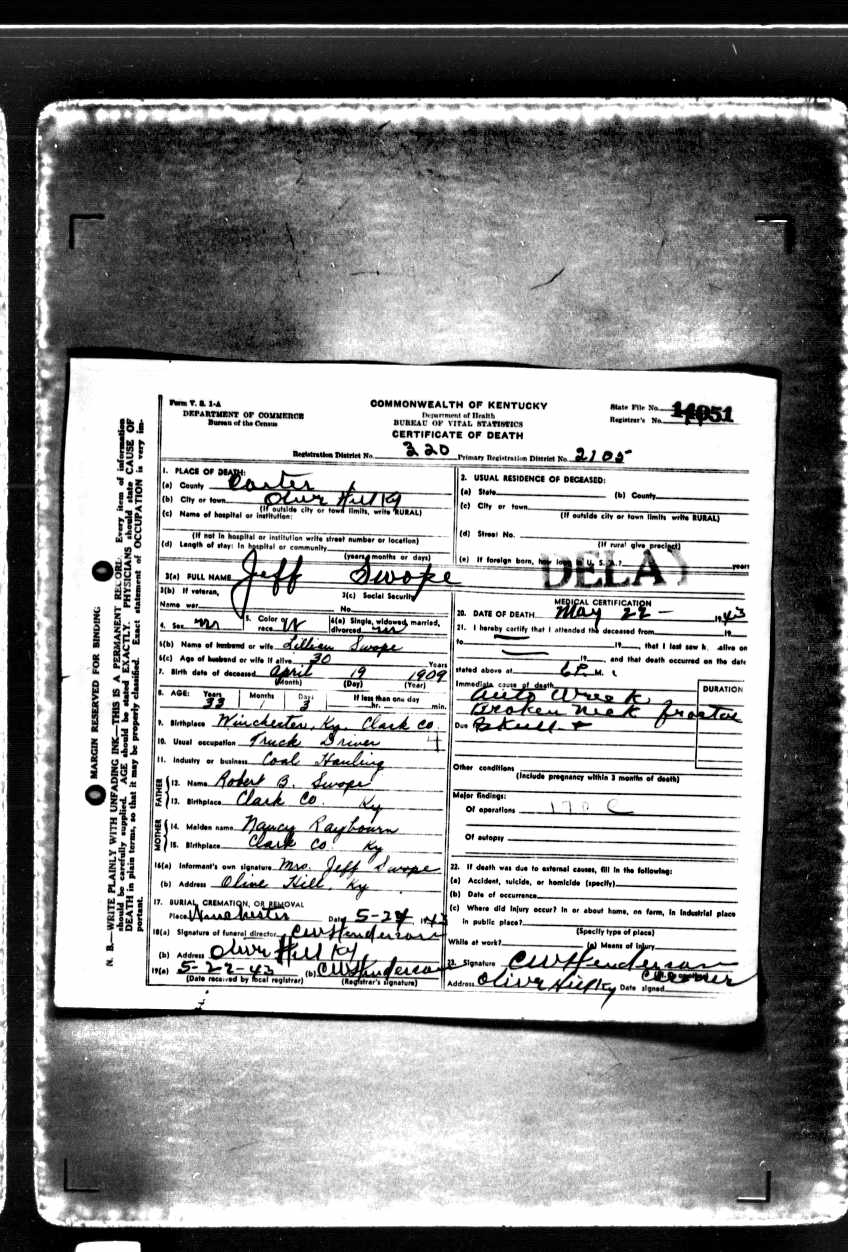 N. B.—WRITE PLAINLY WITH UNFADING INK—THIS IS A PERMANENT RECORD. Every item of information
should be carefully supplied. AGE should be stated EXACTLY. PHYSICIANS should state CAUSE OF
DEATH in plain terms, so that it may be properly classified. Exact statement of OCCUPATION is very im-
portant.
MARGIN RESERVED FOR BINDING
Form V. S. 1-A
DEPARTMENT OF COMMERCE
Bureau of the Census
COMMONWEALTH OF KENTUCKY
Department of Health
BUREAU OF VITAL STATISTICS
CERTIFICATE OF DEATH
State File No. 11051
Registrar's No.
Registration District No. 220 Primary Registration District No. 2105
1. PLACE OF DEATH:
(a) County Carter
(b) City or town Olive Hill Ky
(If outside city or town limits, write RURAL)
(c) Name of hospital or institution:
(If not in hospital or institution write street number or location)
(d) Length of stay: In hospital or community
(years months or days)
2. USUAL RESIDENCE OF DECEASED:
(a) State (b) County
(c) City or town
(If outside city or town limits write RURAL)
(d) Street No.
(If rural give precinct)
(e) If foreign born, how long in U. S. A.? years
DELA
3(a) FULL NAME Jeff Swope
3(b) If veteran,
Name war
3(c) Social Security
No.
4. Sex M
5. Color or race W
6(a) Single, widowed, married,
divorced M
6(b) Name of husband or wife Lillian Swope
6(c) Age of husband or wife if alive 30 Years
7. Birth date of deceased April 19 1909
(Month) (Day) (Year)
8. AGE: Years 33 Months 1 Days 3 If less than one day
hr. min.
9. Birthplace Winchester, Ky. Clark Co.
10. Usual occupation Truck Driver
11. Industry or business Coal Hauling
FATHER
12. Name Robert B. Swope
13. Birthplace Clark Co. Ky
MOTHER
14. Maiden name Nancy Raybourn
15. Birthplace Clark Co. Ky
16(a) Informant's own signature Mrs. Jeff Swope
(b) Address Olive Hill, Ky
17. BURIAL, CREMATION, OR REMOVAL
Place Winchester Date 5-24, 1943
18(a) Signature of funeral director CW Henderson
(b) Address Olive Hill Ky
19(a) 5-22-43 (b) CW Henderson
(Date received by local registrar) (Registrar's signature)
MEDICAL CERTIFICATION
20. DATE OF DEATH May 22- 1943
21. I hereby certify that I attended the deceased from 19
to 19, that I last saw h. alive on
19, and that death occurred on the date
stated above at 6 P. M.
Immediate cause of death
DURATION
Auto Wreck
Broken Neck
Due Skull
Other conditions
(Include pregnancy within 3 months of death)
Major findings:
Of operations 170 C
Of autopsy
22. If death was due to external causes, fill in the following:
(a) Accident, suicide, or homicide (specify)
(b) Date of occurrence
(c) Where did injury occur? In or about home, on farm, in industrial place
in public place?
(Specify type of place)
While at work? (e) Means of injury
23. Signature CW Henderson
Coroner
Address Olive Hill Ky Date signed